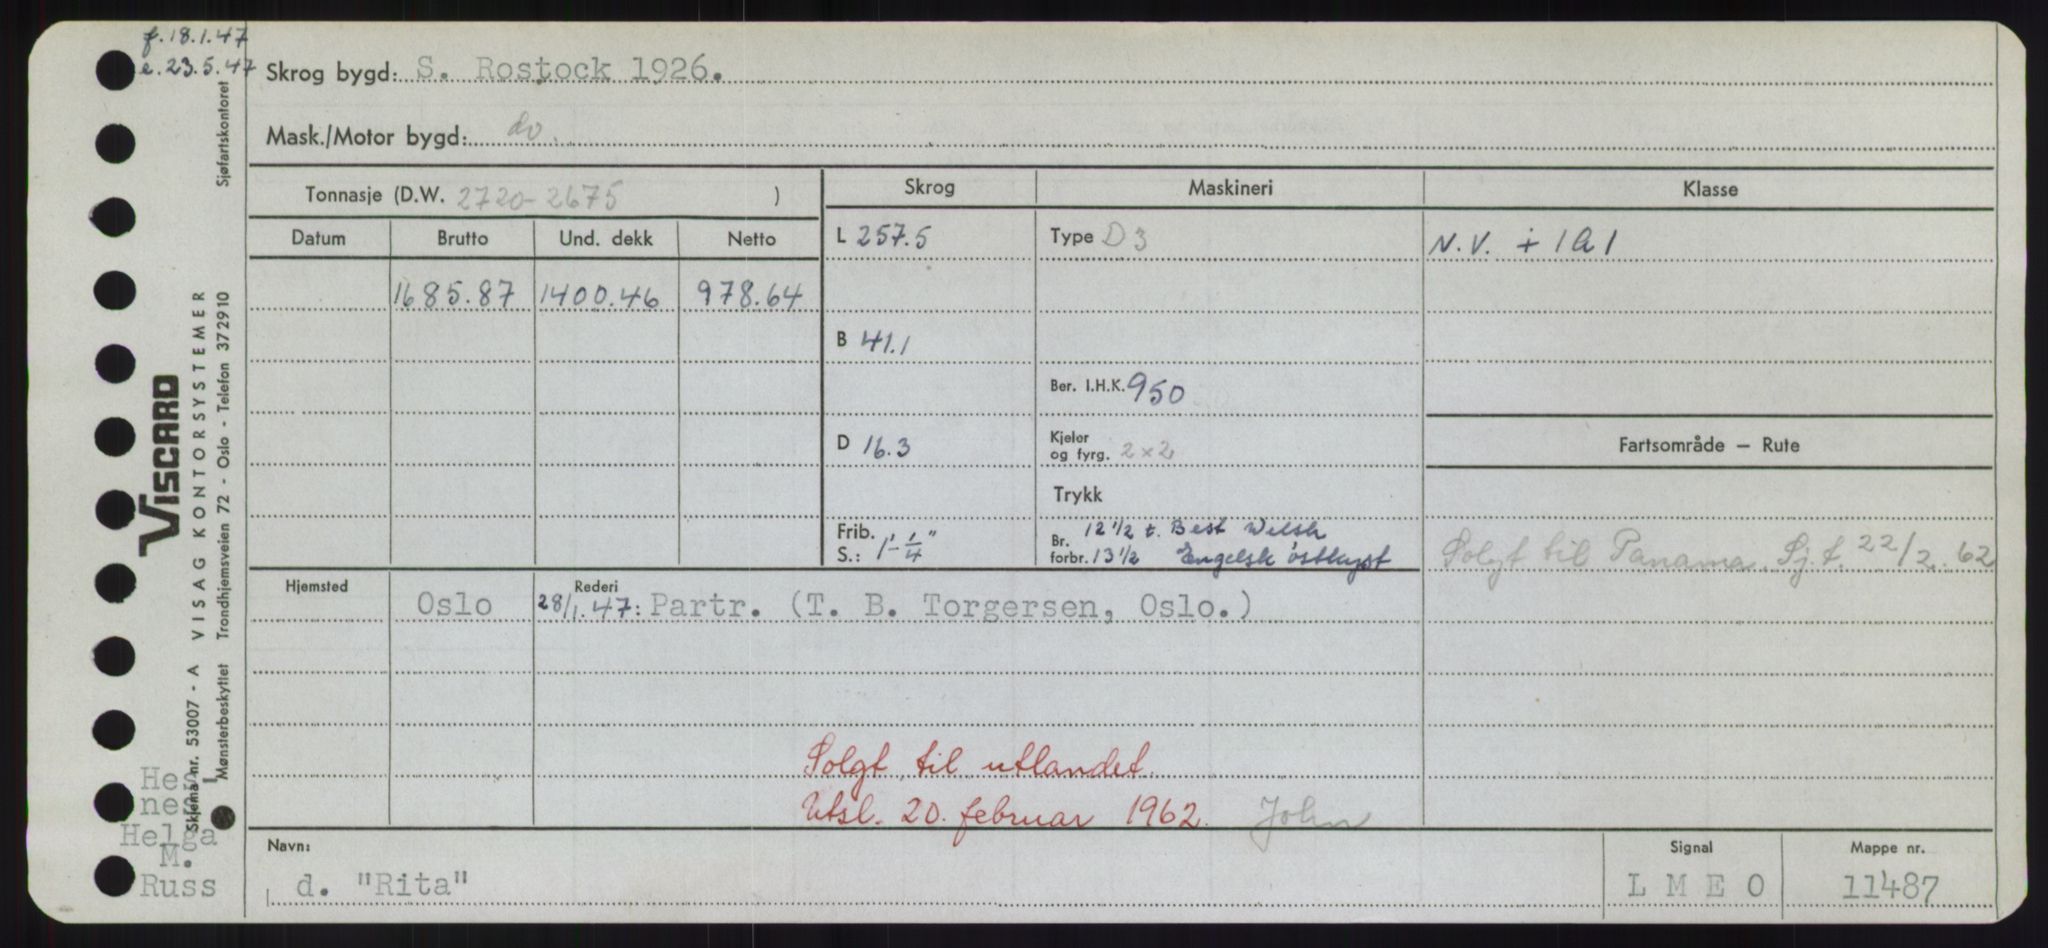 f. 18.1.47
e. 23.5.47
Skrog bygd: S. Rostock 1926.
Mask./Motor bygd: do.
Tonnasje (D.W. 2720-2675 )
Skrog
Maskineri
Klasse
Datum Brutto Und. dekk Netto
L 257.5
Type D 3
N.V. + 1A1
1685.87 1400.46 978.64
B 41.1
Ber. I.H.K. 950
D 16.3
Kjeler og fyrg. 2 x 2
Fartsområde — Rute
Trykk
Frib. S.: 1'-1/4"
Br. forbr. 12 1/2 t. Best Welsh
13 1/2 Engelsk østkyst
Solgt til Panama. Sj.t. 22/2. 62
Hjemsted
Oslo
Rederi
28/1.47: Partr. (T. B. Torgersen, Oslo.)
Solgt til utlandet.
Utsl. 20. februar 1962. John
Navn:
d. "Rita"
Signal
L M E O
Mappe nr.
11487
Helga
M.
Russ
VISCARD
Skjema nr. 53007 - A VISAG KONTORSYSTEMER
Mønsterbeskyttet Trondhjemsveien 72 - Oslo - Telefon 372910
Sjøfartskontoret